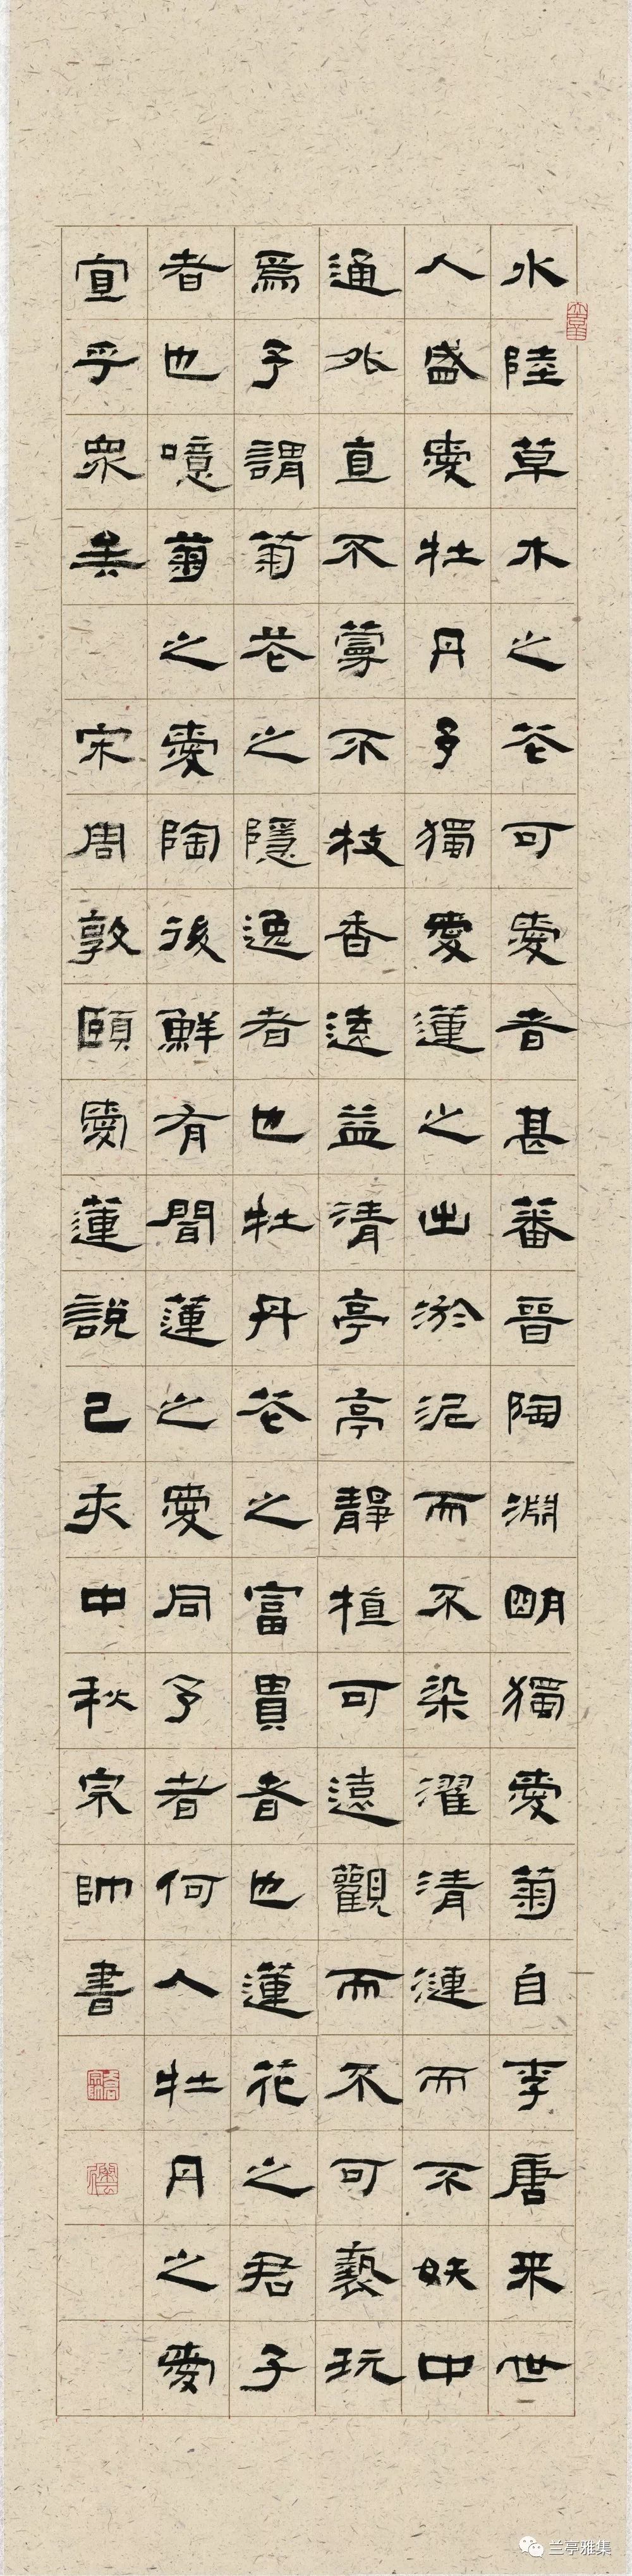 水陸草木之花可愛者甚蕃晉陶淵明獨愛菊自李唐来世
人盛愛牡丹予獨愛蓮之出淤泥而不染濯清漣而不妖中
通外直不蔓不枝香遠益清亭亭靜植可遠觀而不可褻玩
焉予謂菊花之隱逸者也牡丹花之富貴者也蓮花之君子
者也噫菊之愛陶後鮮有聞蓮之愛同予者何人牡丹之愛
宜乎衆矣 宋周敦頤愛蓮說己亥中秋宗帥書
兰亭雅集